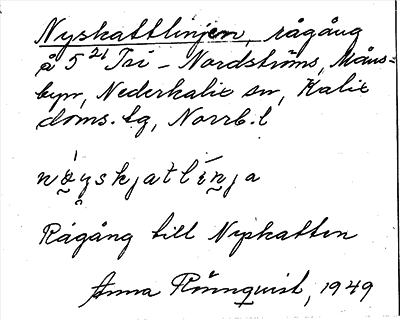 Nyskattlinjen, rågång
å 5²¹ Tri - Nordströms, Måns=
byn, Nederkalix sn, Kalix
doms. tg, Norrb. l
Rågång till Nyskatten
Anna Rönnquist, 1949